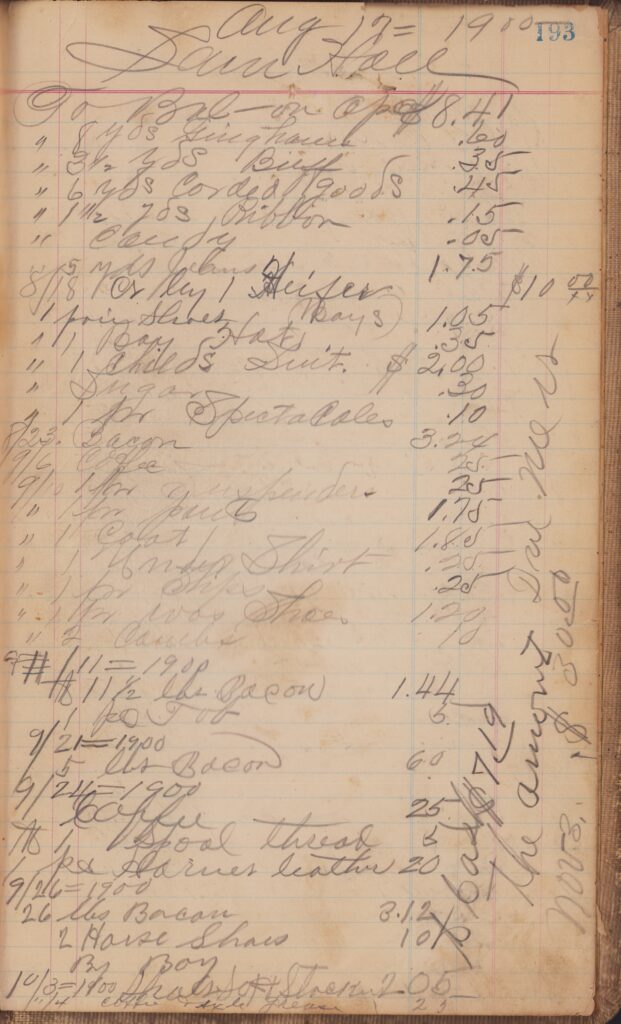 193
Aug 17 = 1900
Sam Hall
To Bal-on $8.41
" 8 yds Gingham .60
" 3 1/2 yds .35
" 6 yds Corded goods .45
" 1 1/2 yds Ribbon .15
" Candy .05
" 5 yds 1.75
8/18 Cr by 1 Heifer $10 00
1 pair Shoes (Boys) 1.05
" 1 Boy Hats .35
" 1 Childs Suit. $ 2.00
" Sugar .30
" 1 pr Spectacales .10
8/23. Bacon 3.24
9/6 Coffee 25
9/10 1 pr Suspenders 25
" 1 pr pants 1.75
" 1 Coat 1.85
" 1 Under Shirt .25
" 1 pr Slips .25
" 1 pr Shoes 1.20
" 2 Combs 10
9/11 = 1900
11 1/2 lbs Bacon 1.44
1 5
9/21 = 1900
5 lbs Bacon 60
9/24 = 1900
Coffee 25
1 Spool thread 5
1 pc Harnes leather 20
9/26 = 1900
26 lbs Bacon 3.12
2 Horse Shoes 10
By Boy
10/3 = 1900 Shoes & Stockn 2.05
10/4 grease 25
Bal $7.19
The amount Due Me is
Nov 3. $30.00